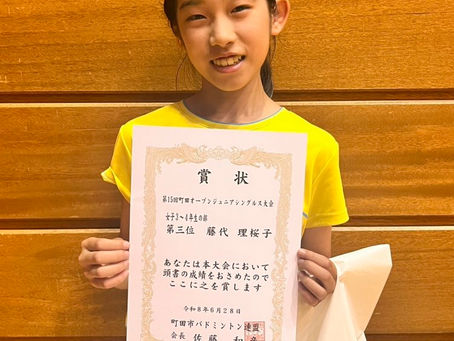 賞状
第15回町田オープンジュニアシングルス大会
女子3～4年生の部
第三位 藤代 理桜子
あなたは本大会において
頭書の成績をおさめたので
ここに之を賞します
令和8年6月28日
町田市バドミントン連盟
会長 佐藤 和